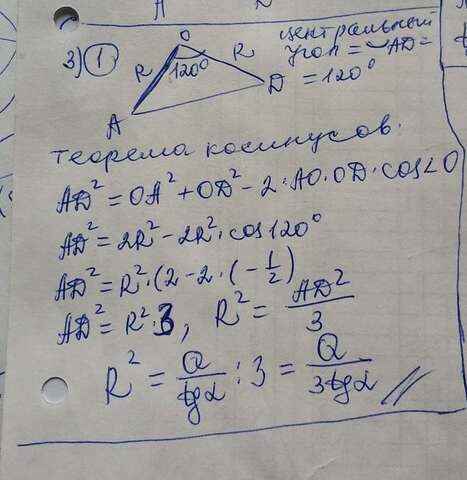 A D
3) 1 O R R 120° A D
центральный
угол = ◡AD =
= 120°
теорема косинусов.
AD² = OA² + OD² - 2·AO·OD·cos∠O
AD² = 2R² - 2R²·cos120°
AD² = R²·(2 - 2·(-1/2)
AD² = R²·3, R² = AD²/3
R² = Q/tgα : 3 = Q/3tgα //